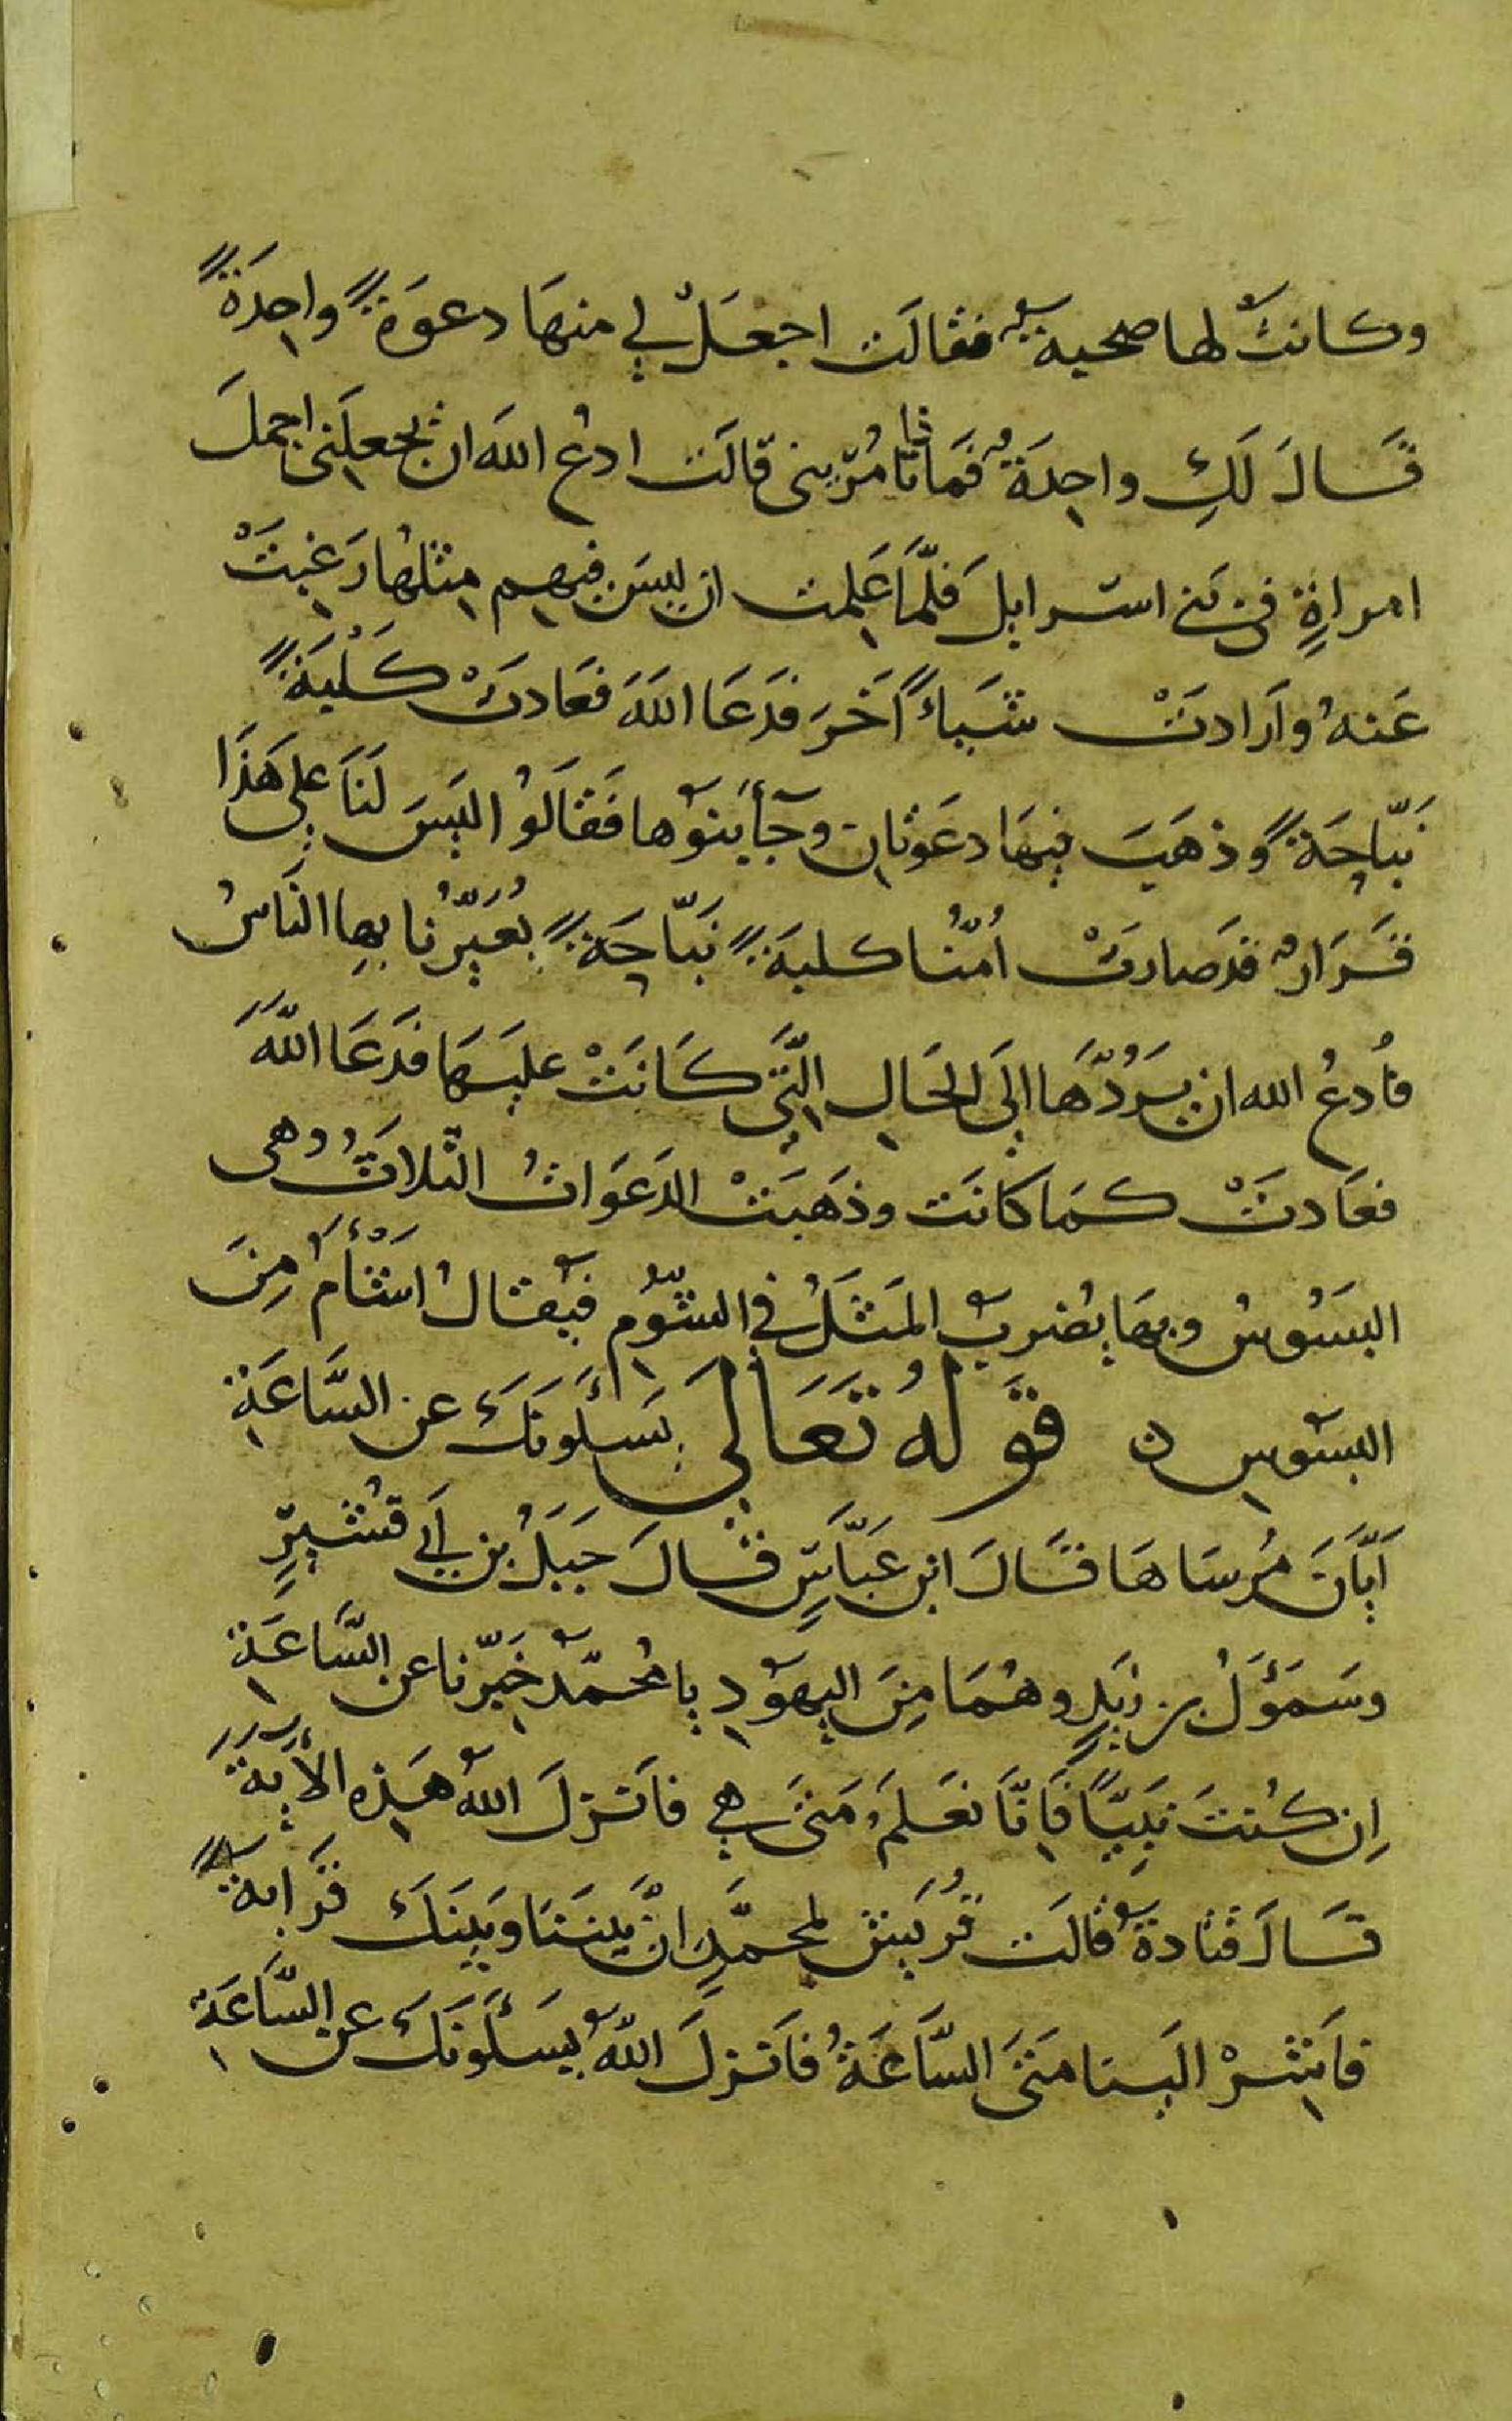 وكانت لها صحبة فقالت اجعل لي منها دعوةً واحدةً
قال لكِ واحدةٌ فما تأمريني قالت ادعُ الله ان يجعلني اجمل
امراةٍ في بني اسرايل فلمّا علمت ان ليس فيهم مثلها رغبتْ
عنه وارادتْ شياً اخر فدعا الله فعادت كلبةً
نبّاحةً وذهبت فيها دعوتان وجا بنوها فقالوا ليس لنا على هذا
قرارٌ قد صارت اُمّنا كلبةً نبّاحةً يُعيّرُنا بها الناسُ
فادعُ الله ان يردّها الى الحال التي كانتْ عليها فدعا اللّه
فعادتْ كما كانت وذهبتْ الدعوات الثلاث وهي
البسوس وبها يضرب المثل في الشوم فيقال اشأم من
البسوس ه قوله تعالى يسـٔلونك عن السّاعة
ايّان مُرساها قال ابن عبّاسٍ قال جبل بن ابي قشيرٍ
وسمؤل بن زيدٍ وهما من اليهود يا محمّد خبّرنا عن السّاعة
اِن كُنت نبيّاً فانّا نعلم متى هي فانزل الله هذه الأية
قال قتادة قالت قريش لمحمّدٍ انّ بيننا وبينك قرابةً
فاشرْ الينا متى السّاعةُ فانزل اللّه يسـٔلونك عن السّاعة